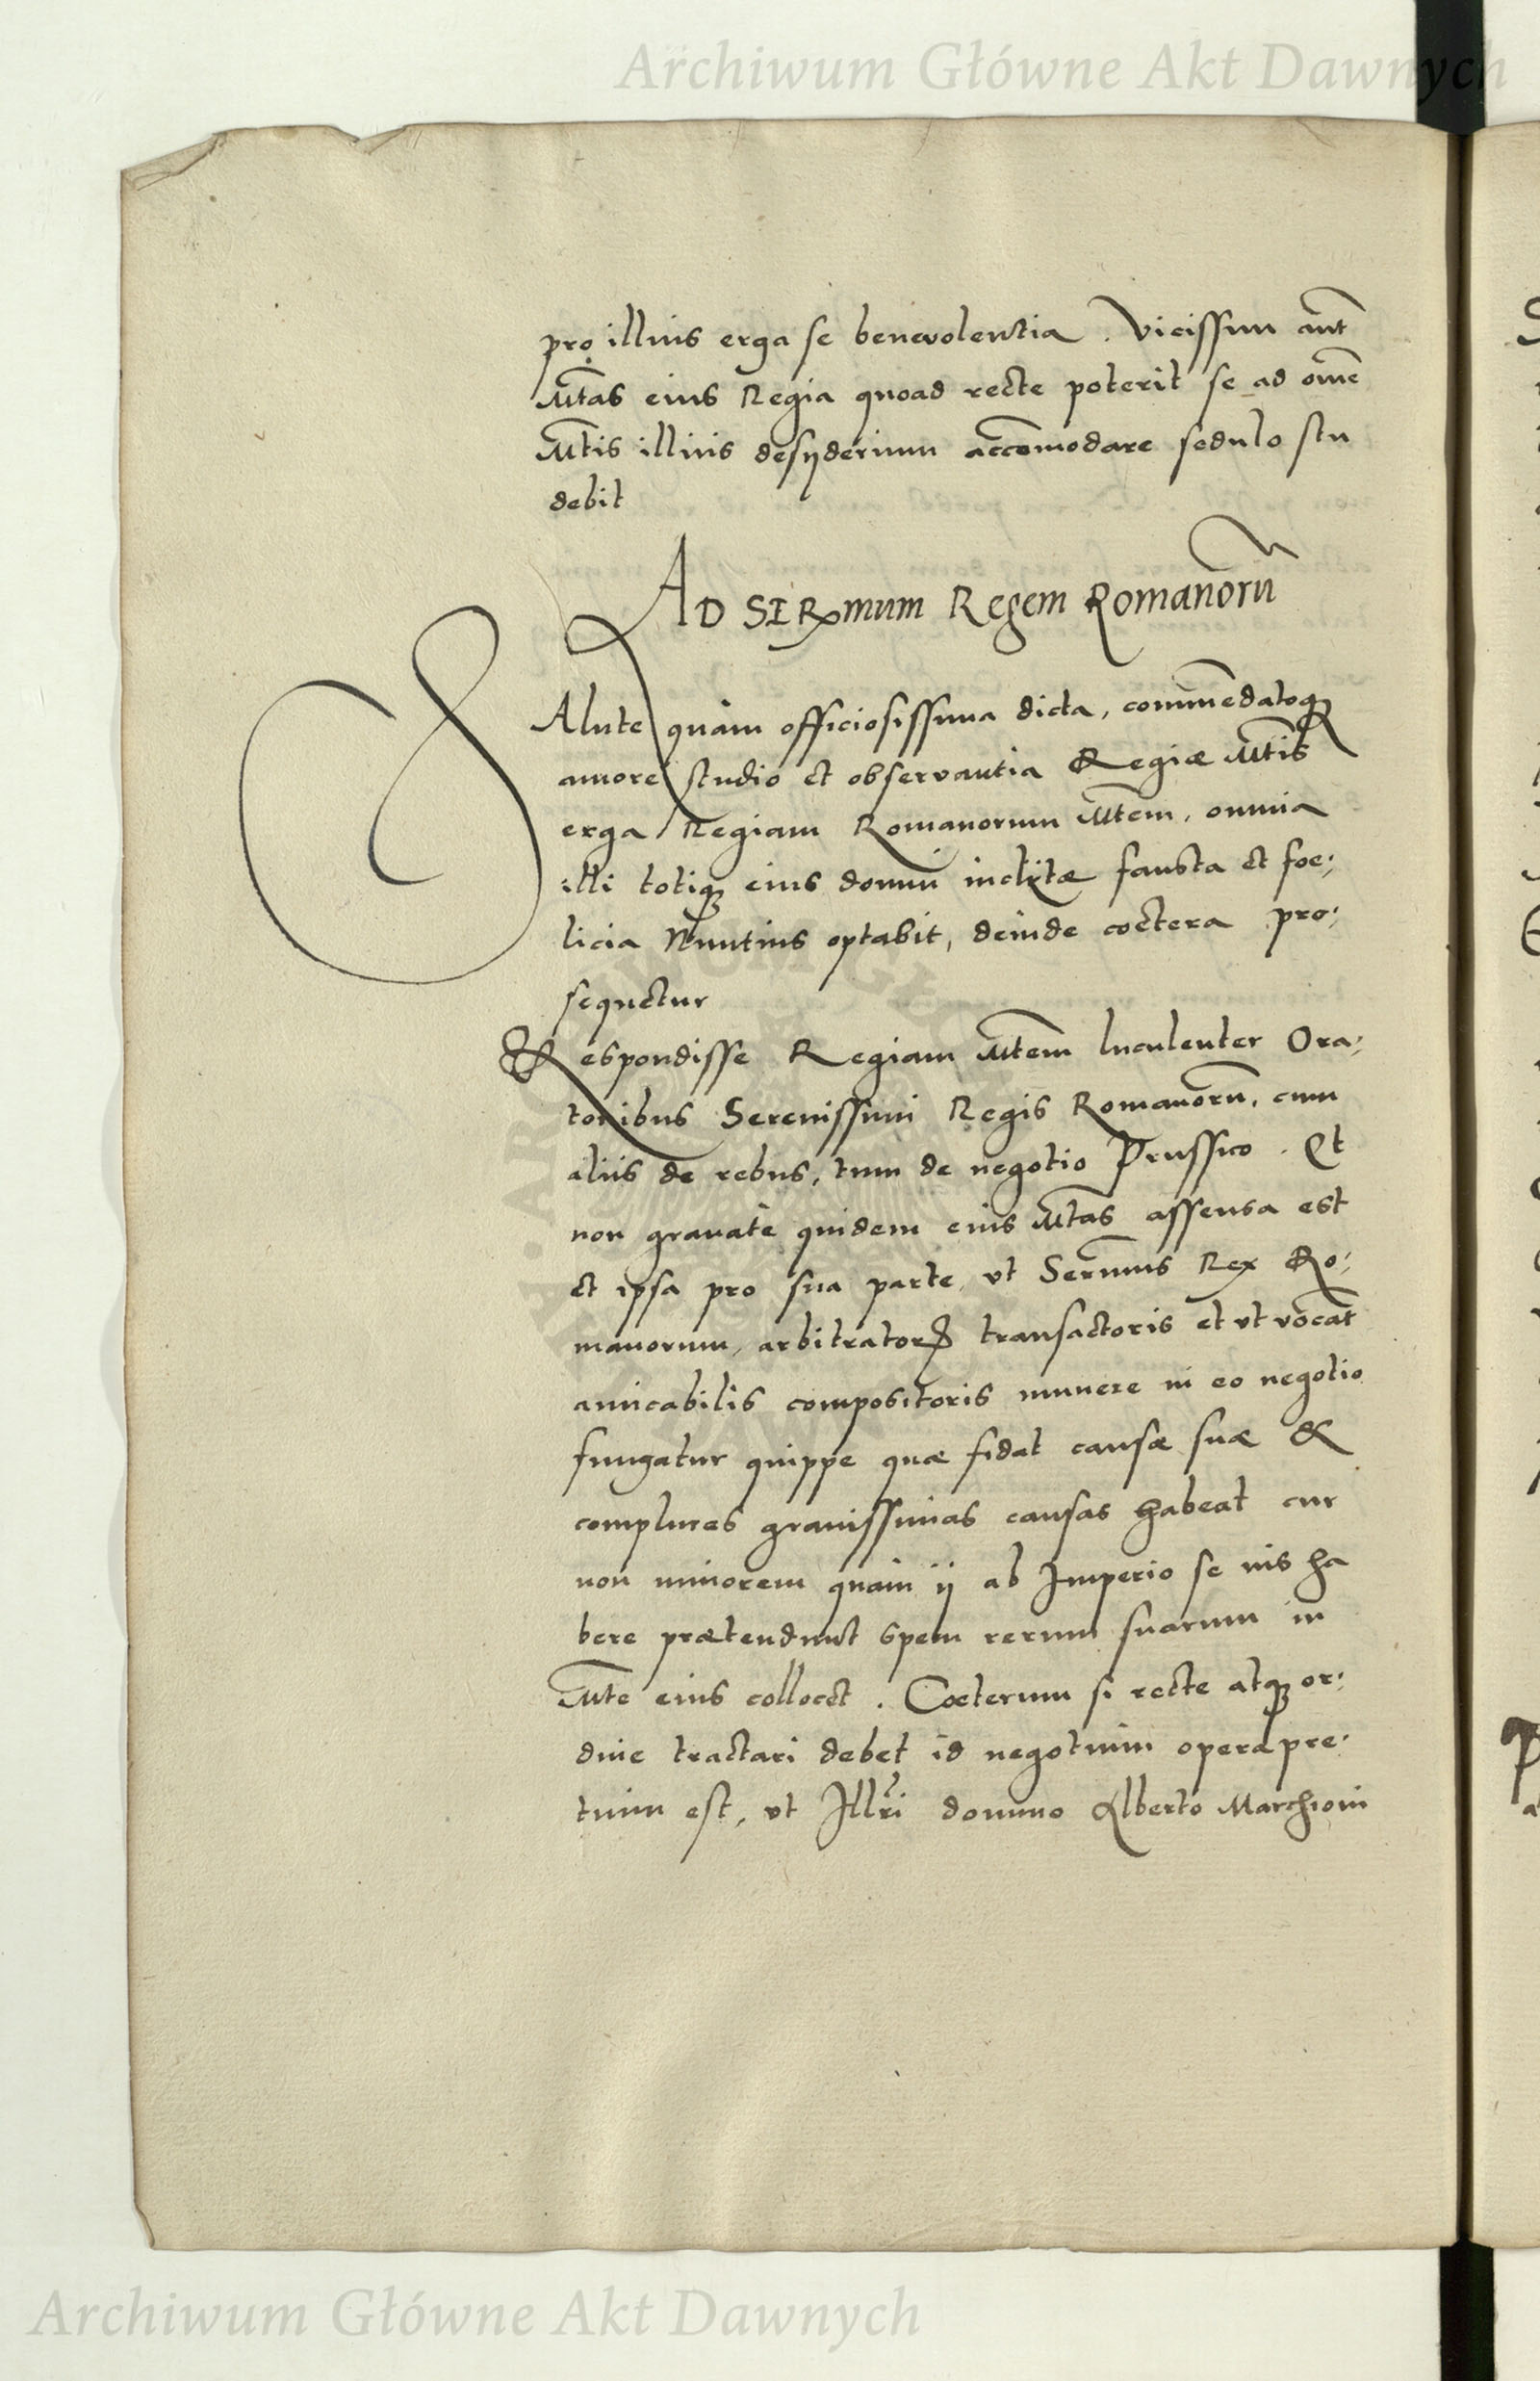 Archiwum Główne Akt Dawnych
pro illius erga se benevolentia. Vicissim aut̃
Mt̃as eius Regia quoad recte poterit se ad om̃e
Mt̃is illius desyderium accom̃odare sedulo stu
debit
AD SERmum Regem Romanorũ
SAlute quàm officiosissima dicta, commẽdatoq;
amore studio et observantia Regiæ Mt̃is
erga Regiam Romanorum Mt̃em, omnia
illi totiq; eius domui inclytæ fausta et foe:
licia Nuntius optabit, deinde coetera pro:
sequetur
Respondisse Regiam Mt̃em luculenter Ora:
toribus Serenissimi Regis Romanorũ, cum
aliis de rebus, tum de negotio Prussico. Et
non gravatè quidem eius Mt̃as assensa est
et ipsa pro sua parte, ut Serm̃us Rex Ro:
manorum, arbitratoris transactoris et ut vocãt
amicabilis compositoris munere in eo negotio
fungatur quippe quæ fidat causæ suæ &
complures gravissimas causas habeat cur
non minorem quàm ij ab Imperio se nis ha
bere prætendunt spem rerum suarum in
Mt̃e eius collocet. Coeterum si recte atq; or:
dine tractari debet id negotium operæpre:
tium est, ut Illr̃i domino Alberto Marchioni
Archiwum Główne Akt Dawnych